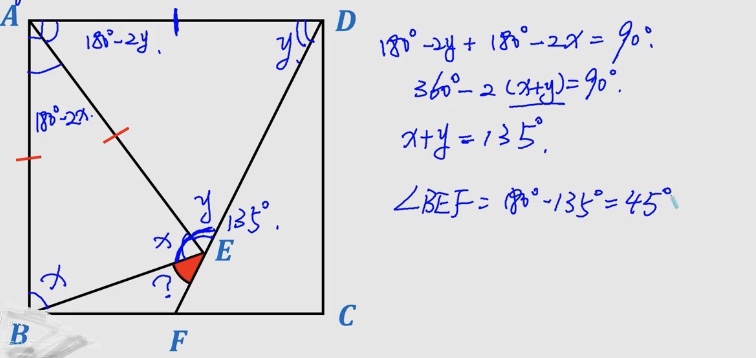 A
D
180°-2y.
y
180°-2x.
y
135°.
x
E
x
?
B
F
C
180°-2y+180°-2x=90°.
360°-2(x+y)=90°.
x+y=135°.
∠BEF=180°-135°=45°